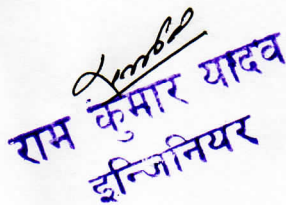 राम कुमार यादव
इन्जिनियर